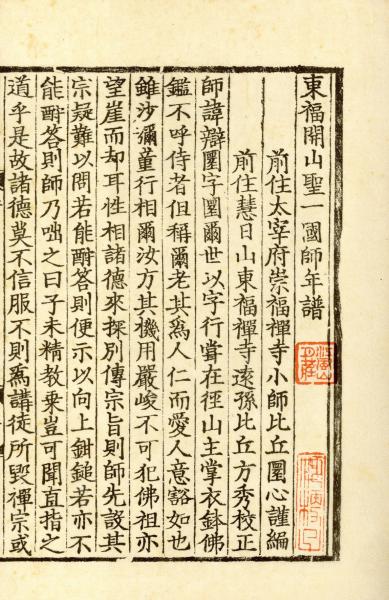 東福開山聖一國師年譜
前住太宰府崇福禪寺小師比丘圓心謹編
前住慧日山東福禪寺遠孫比丘方秀校正
師諱辯圓字圓爾世以字行嘗在徑山主掌衣鉢佛
鑑不呼侍者但稱爾老其爲人仁而愛人意豁如也
雖沙彌童行相爾汝方其機用嚴峻不可犯佛祖亦
望崖而却耳性相諸德來探別傳宗旨則師先設其
宗疑難以問若能酬答則便示以向上鉗鎚若亦不
能酬答則師乃咄之曰子未精教乗豈可聞直指之
道乎是故諸德莫不信服不則爲講徒所毀禪宗或